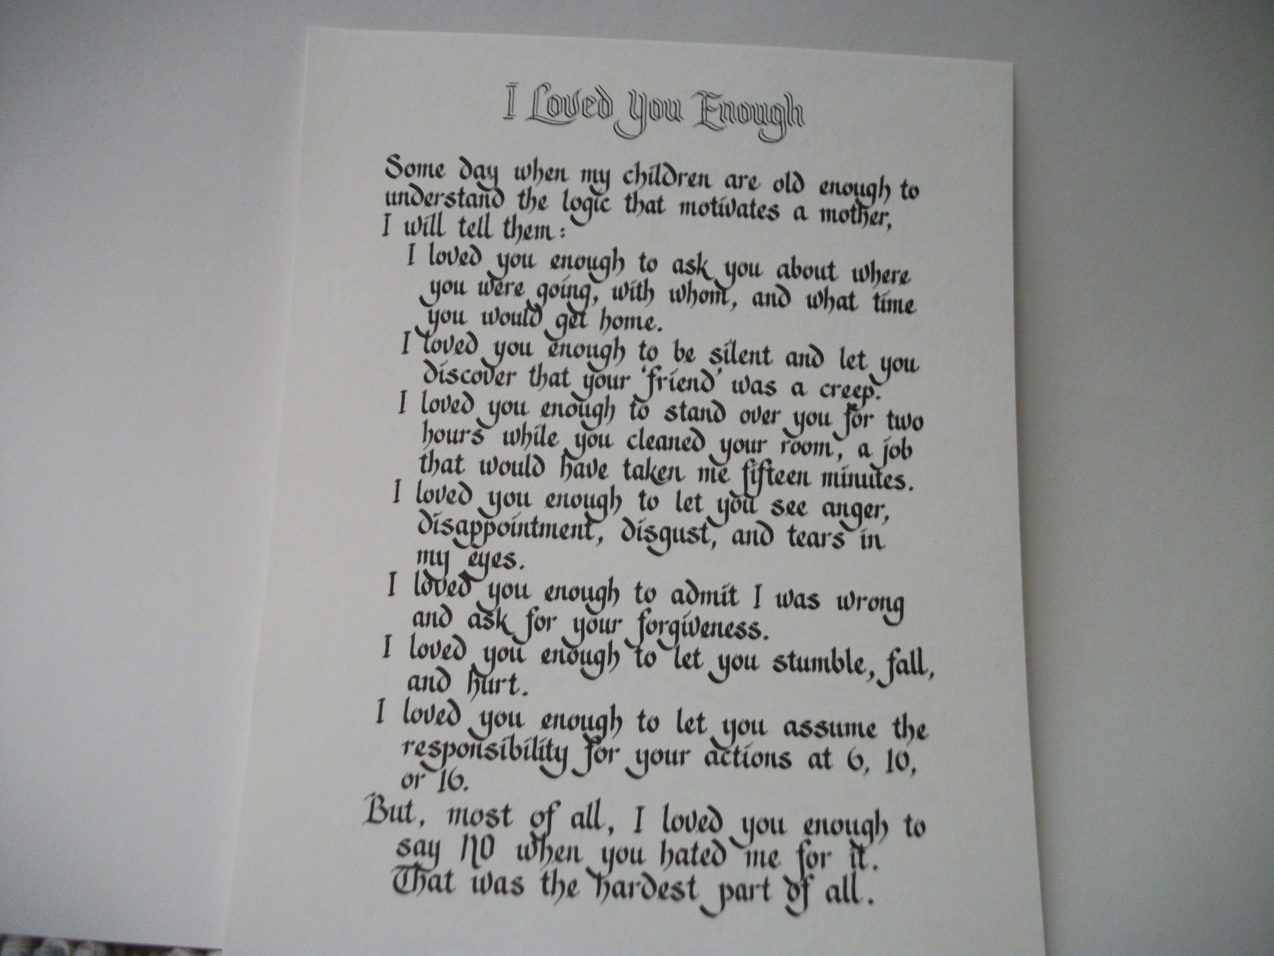 I Loved You Enough
Some day when my children are old enough to
understand the logic that motivates a mother,
I will tell them:
I loved you enough to ask you about where
you were going, with whom, and what time
you would get home.
I loved you enough to be silent and let you
discover that your 'friend' was a creep.
I loved you enough to stand over you for two
hours while you cleaned your room, a job
that would have taken me fifteen minutes.
I loved you enough to let you see anger,
disappointment, disgust, and tears in
my eyes.
I loved you enough to admit I was wrong
and ask for your forgiveness.
I loved you enough to let you stumble, fall,
and hurt.
I loved you enough to let you assume the
responsibility for your actions at 6, 10,
or 16.
But, most of all, I loved you enough to
say NO when you hated me for it.
That was the hardest part of all.